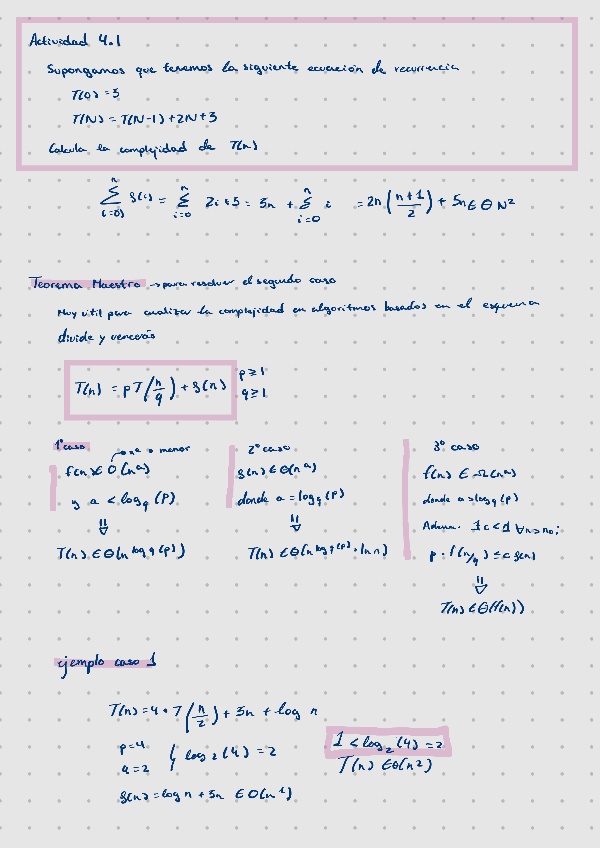 Actividad 4.1
Supongamos que tenemos la siguiente ecuación de recurrencia
T(0) = 3
T(N) = T(N-1) + 2N + 3
Calcula la complejidad de T(n)
∑_{i=0}^{n} g(i) = ∑_{i=0}^{n} 2i + 5 = 3n + ∑_{i=0}^{n} i = 2n ((n+1)/2) + 5n ∈ Θ N²
Teorema Maestro → para resolver el segundo caso
Muy útil para analizar la complejidad en algoritmos basados en el esquema
divide y vencerás
T(n) = p T(n/q) + g(n) p ≥ 1
q ≥ 1
1º caso
→ nª o menor
f(n) ∈ O(nª)
y a < log_q (p)
⇓
T(n) ∈ Θ(n^{log_q (p)})
2º caso
g(n) ∈ Θ(nª)
donde a = log_q (p)
⇓
T(n) ∈ Θ(n^{log_q (p)} · ln n)
3º caso
f(n) ∈ Ω(nª)
donde a > log_q (p)
Adem. ∃c < 1 ∀n > n₀;
p · f(n/q) ≤ c g(n)
⇓
T(n) ∈ Θ(f(n))
ejemplo caso 1
T(n) = 4 · T(n/2) + 3n + log n
p = 4
q = 2
log₂(4) = 2
1 < log₂(4) = 2
T(n) ∈ Θ(n²)
g(n) = log n + 5n ∈ O(n¹)